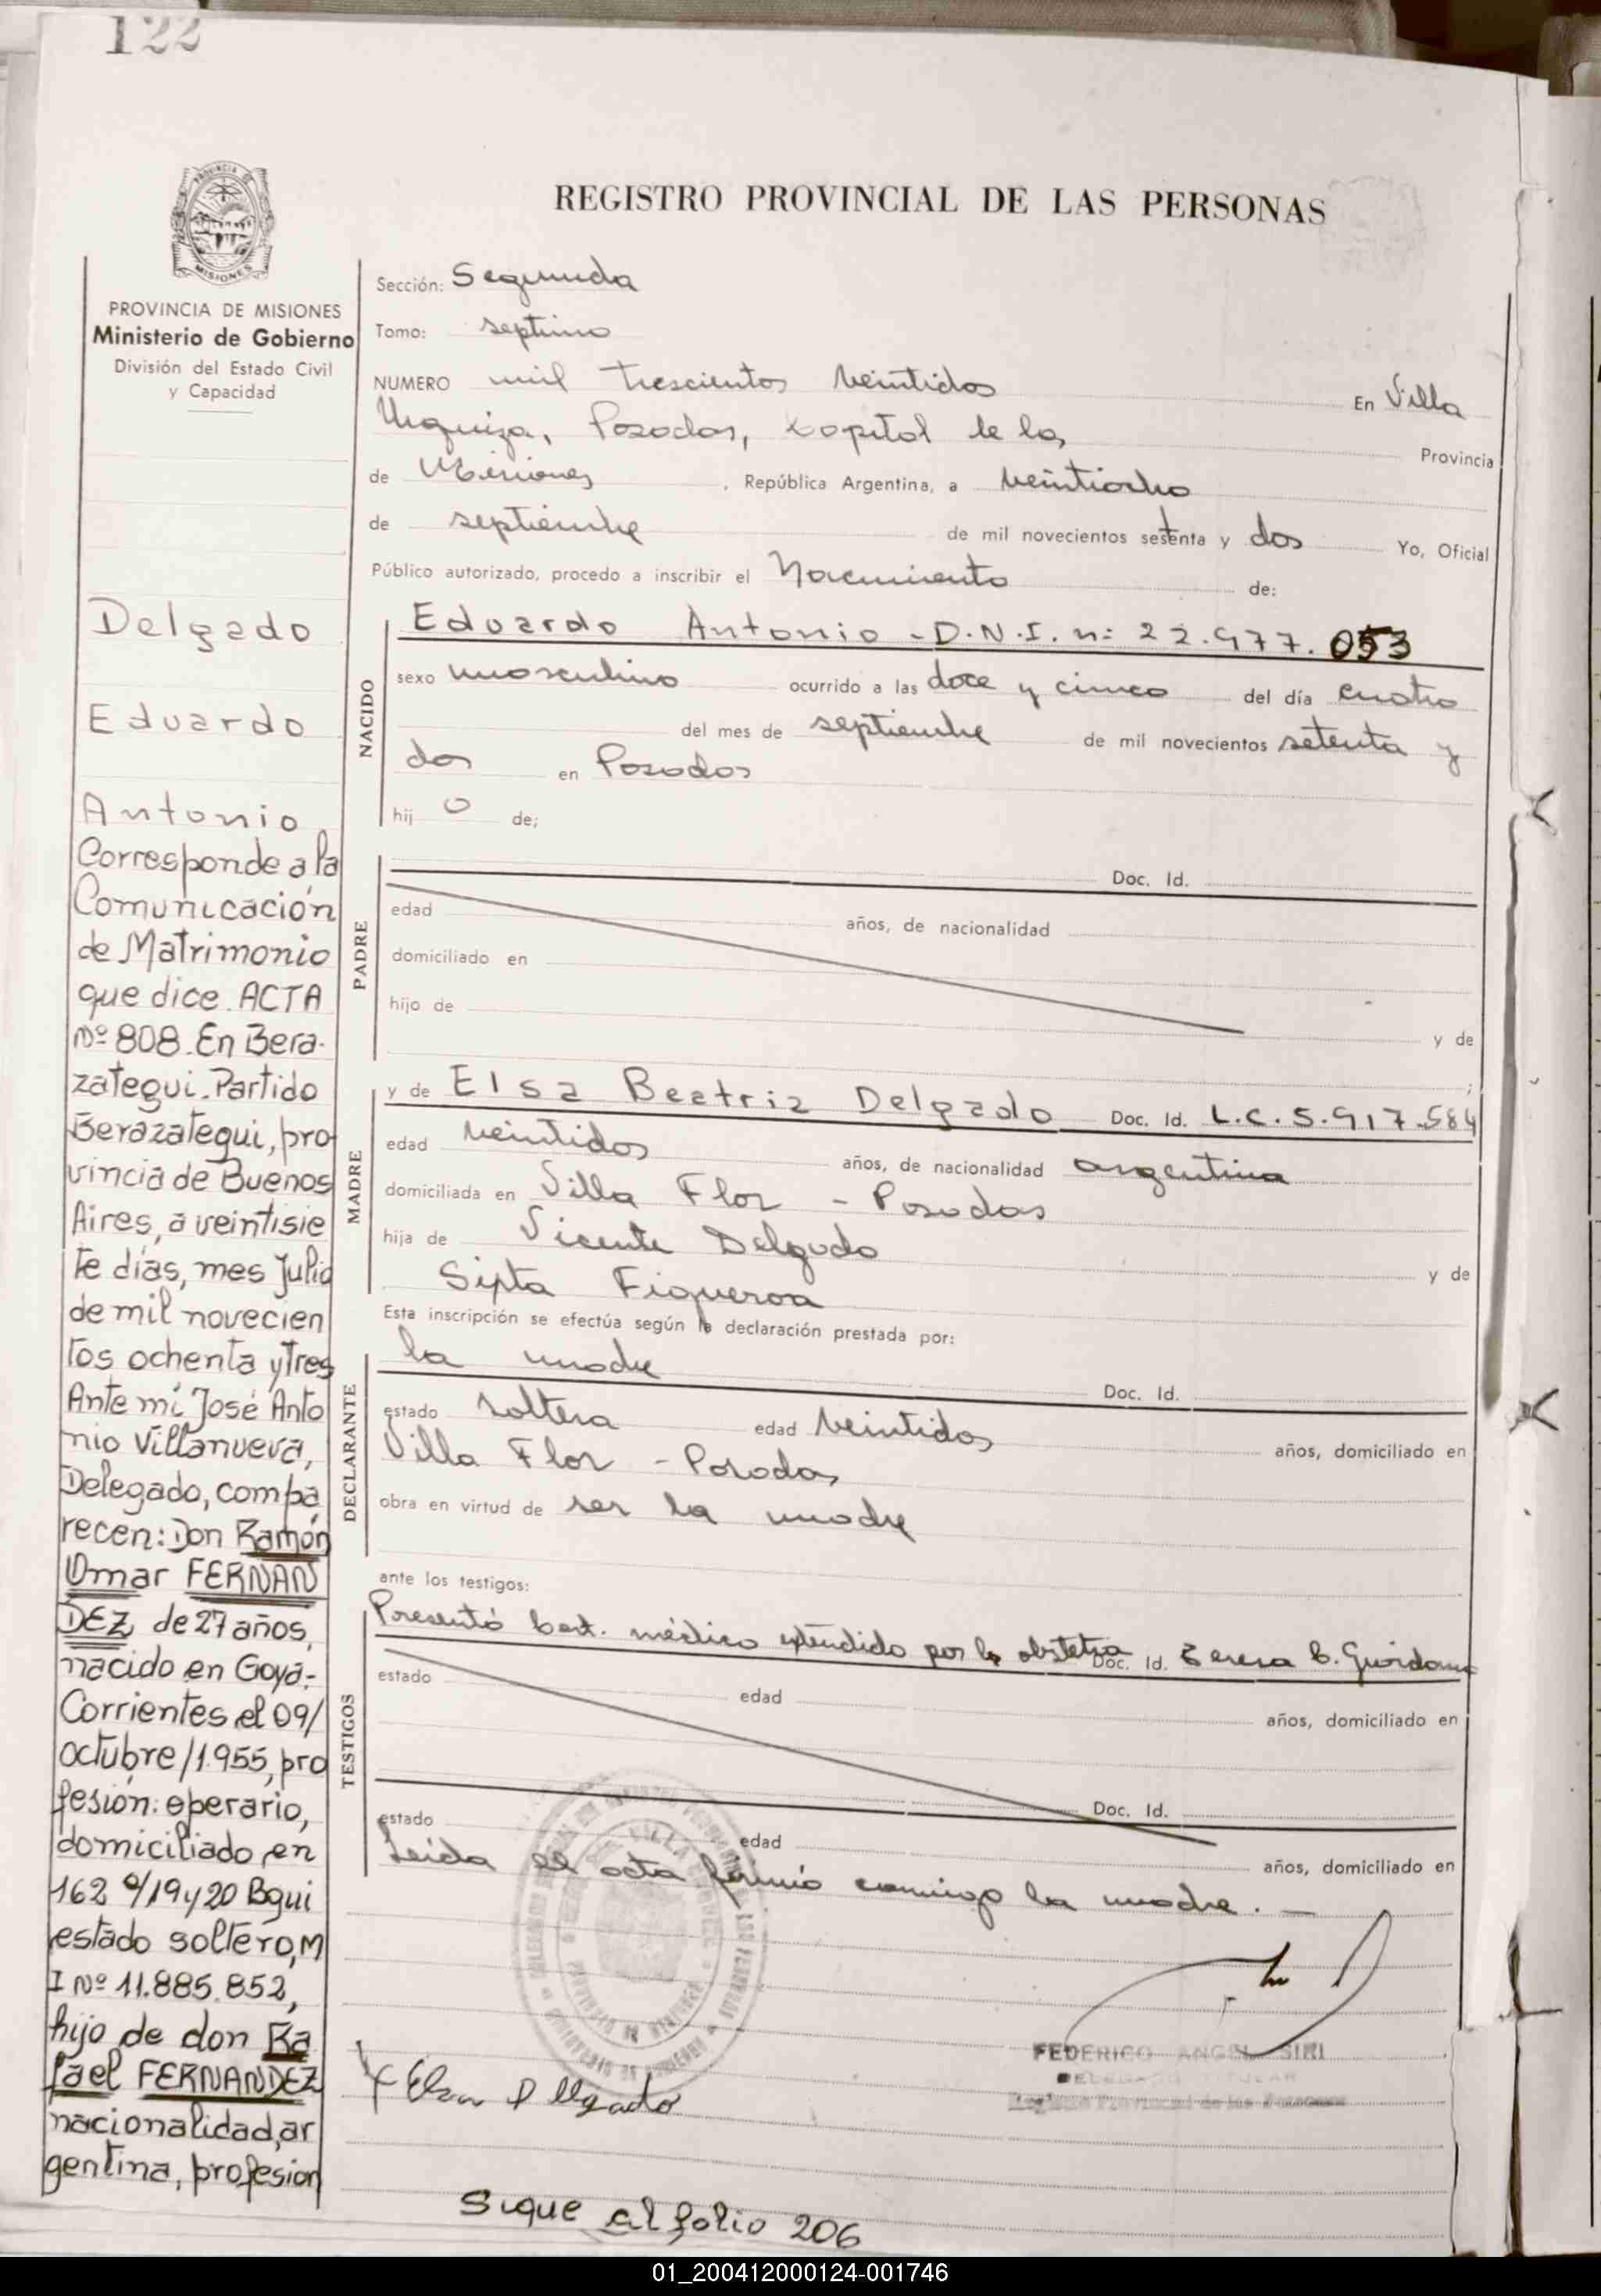 122
REGISTRO PROVINCIAL DE LAS PERSONAS
PROVINCIA DE
MISIONES
PROVINCIA DE MISIONES
Ministerio de Gobierno
División del Estado Civil
y Capacidad
Delgado
Eduardo
Antonio
Corresponde a la
Comunicación
de Matrimonio
que dice. ACTA
Nº 808. En Bera-
zategui. Partido
Berazategui, pro
vincia de Buenos
Aires, a veintisie
te días, mes Julio
de mil novecien
tos ochenta y tres
Ante mí José Anto
nio Villanueva,
Delegado, compa
recen: Don Ramón
Omar FERNAN
DEZ, de 27 años,
nacido en Goya-
Corrientes el 09/
octubre/1.955, pro
fesión: operario,
domiciliado en
162 e/19 y 20 Bgui
estado soltero, M
I Nº 11.885.852,
hijo de don Ra
fael FERNANDEZ
nacionalidad, ar
gentina, profesion
Sección: Segunda
Tomo: septimo
NUMERO mil trescientos veintidos En Villa
Urquiza, Posadas, capital de la, Provincia
de Misiones, República Argentina, a veintiocho
de septiembre de mil novecientos setenta y dos Yo, Oficial
Público autorizado, procedo a inscribir el Nacimiento de:
NACIDO
Eduardo Antonio - D.N.I. n: 22.977.053
sexo masculino ocurrido a las doce y cinco del día cuatro
del mes de septiembre de mil novecientos setenta y
dos en Posadas
hijo de;
PADRE
Doc. Id.
edad años, de nacionalidad
domiciliado en
hijo de
y de
;
MADRE
y de Elsa Beatriz Delgado Doc. Id. L.C. 5.917.584
edad veintidos años, de nacionalidad argentina
domiciliada en Villa Flor - Posadas
hija de Vicente Delgado y de
Sixta Figueroa
Esta inscripción se efectúa según la declaración prestada por:
DECLARANTE
la madre Doc. Id.
estado soltera edad veintidos años, domiciliado en
Villa Flor - Posadas
obra en virtud de ser la madre
ante los testigos:
TESTIGOS
Presentó Cert. médico extendido por la obstetra Doc. Id. Teresa C. Guirdano
estado edad años, domiciliado en
Doc. Id.
estado edad años, domiciliado en
Leida el acta firmó conmigo la madre. -
FEDERICO ANGEL SIRI
DELEGADO TITULAR
Registro Provincial de las Personas
Elsa Delgado
Sigue al folio 206
01_200412000124-001746